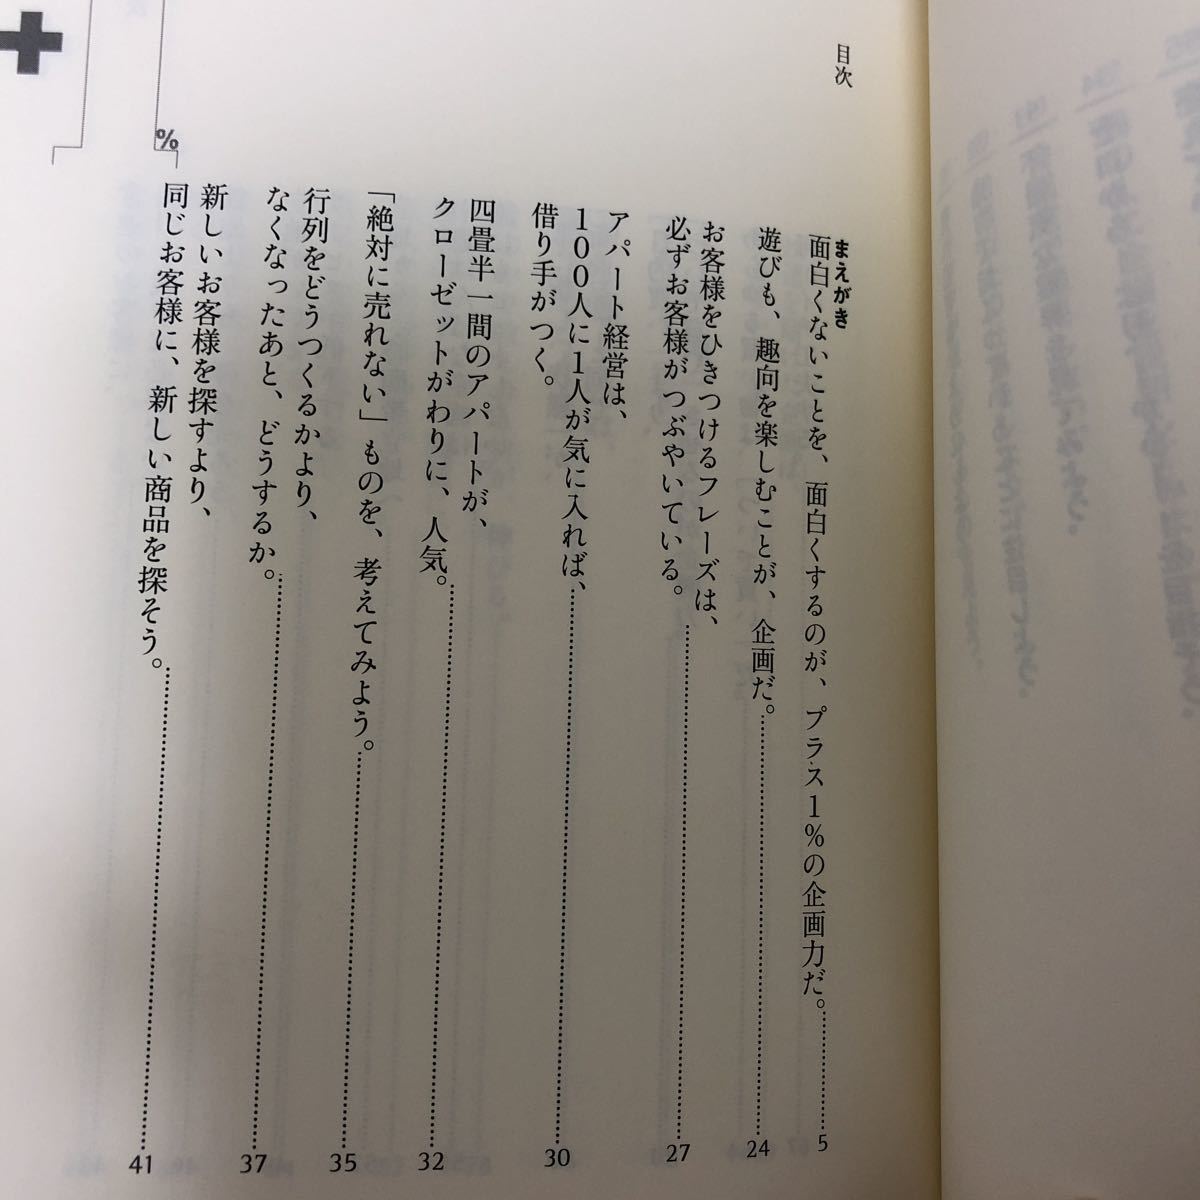 目次
まえがき
面白くないことを、面白くするのが、プラス1%の企画力だ。……5
遊びも、趣向を楽しむことが、企画だ。……24
お客様をひきつけるフレーズは、
必ずお客様がつぶやいている。……27
アパート経営は、
100人に1人が気に入れば、
借り手がつく。……30
四畳半一間のアパートが、
クローゼットがわりに、人気。……32
「絶対に売れない」ものを、考えてみよう。……35
行列をどうつくるかより、
なくなったあと、どうするか。……37
新しいお客様を探すより、
同じお客様に、新しい商品を探そう。……41
%